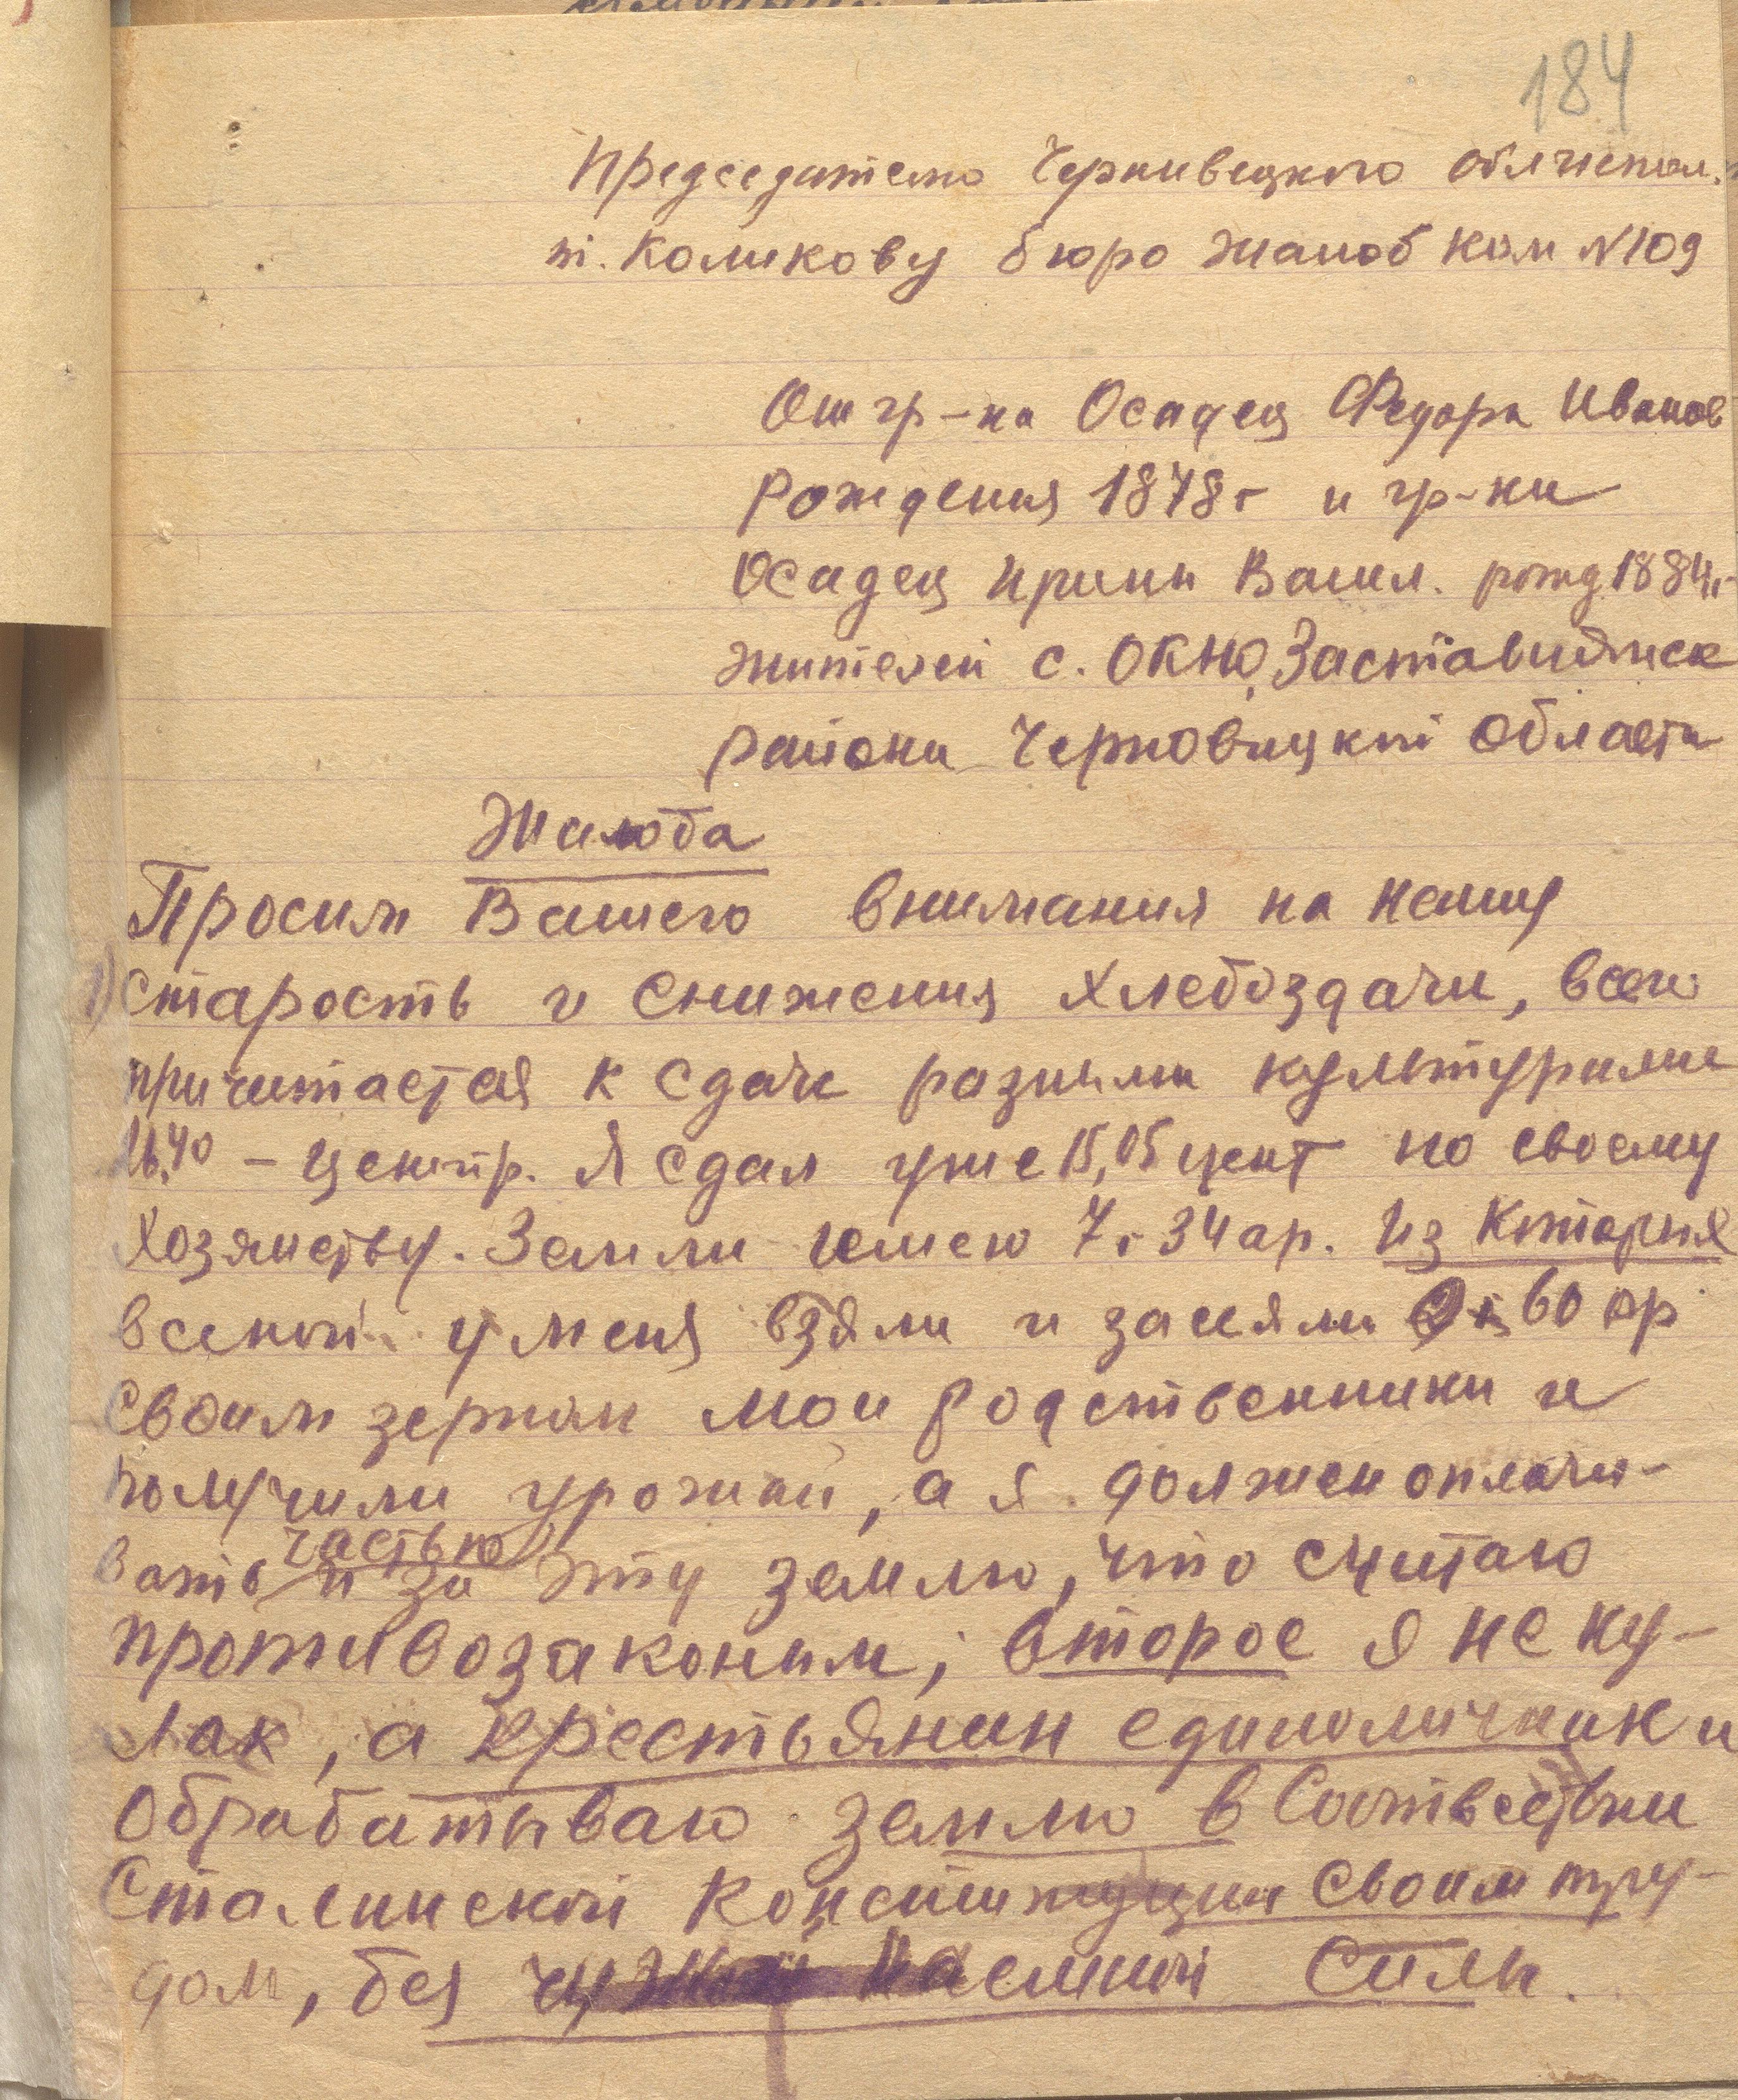 184
Председателю Черновецкого облисполк.
т. Коликову бюро жалоб ком N109
От гр-на Осадец Федора Иванов
рождения 1878г и гр-ки
Осадец Ирины Васил. рожд 1884г
жителей с. ОКНО, Заставновск
района Черновицкой области
Жалоба
Просим Вашего внимания на нашу
1) старость и снижения хлебоздачи, всего
причитается к сдаче разными культурами
16,40 - центр. Я сдал уже 15,05 цент по своему
хозяйству. Земли имею 7г 34ар. Из которых
весной у меня взяли и засеяли 2г 60 ар
своим зерном мои родственники и
получили урожай, а я должен оплачи-
вать частью и за эту землю, что считаю
противозаконым, второе я не ку-
лак, а крестьянин единоличник и
обрабатываю землю в соответствии
Сталинской Конституции своим тру-
дом, без наемной силы.